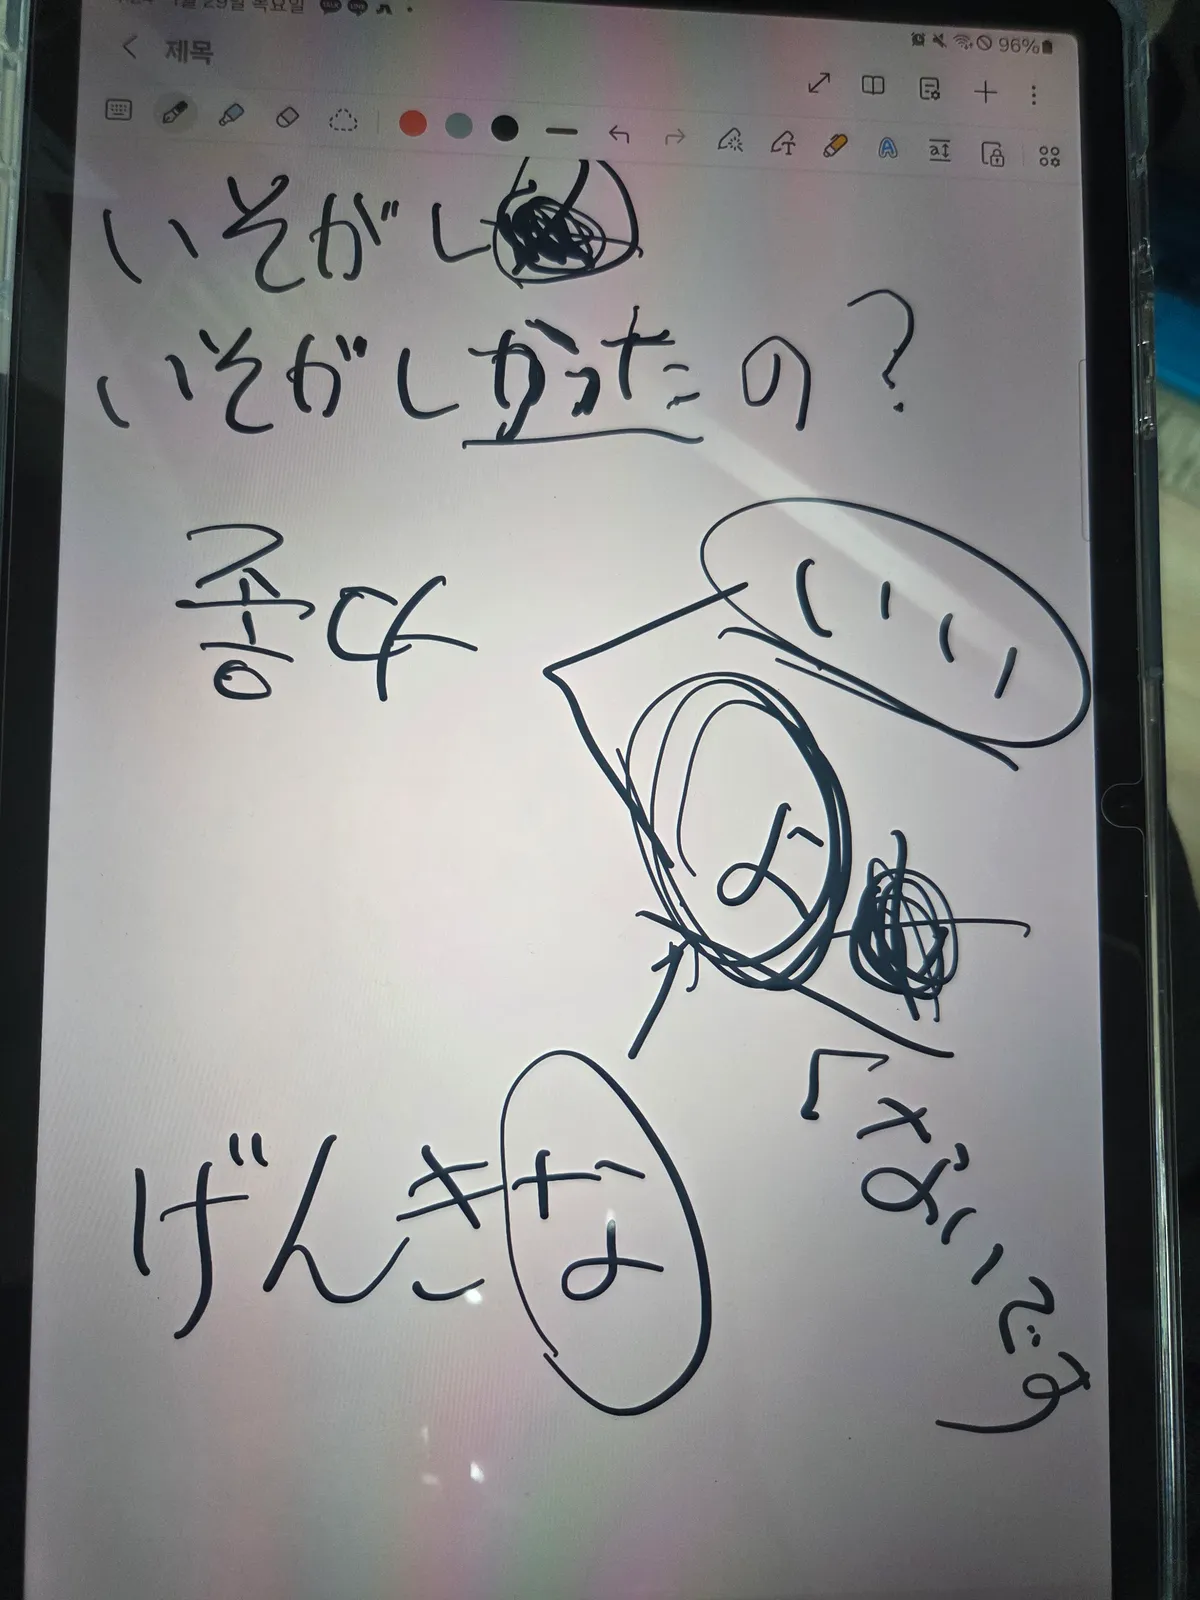 1월 29일 목요일
96%
제목
いそがし
いそがしかったの?
좋다
いい
よ
げんきな
くないです